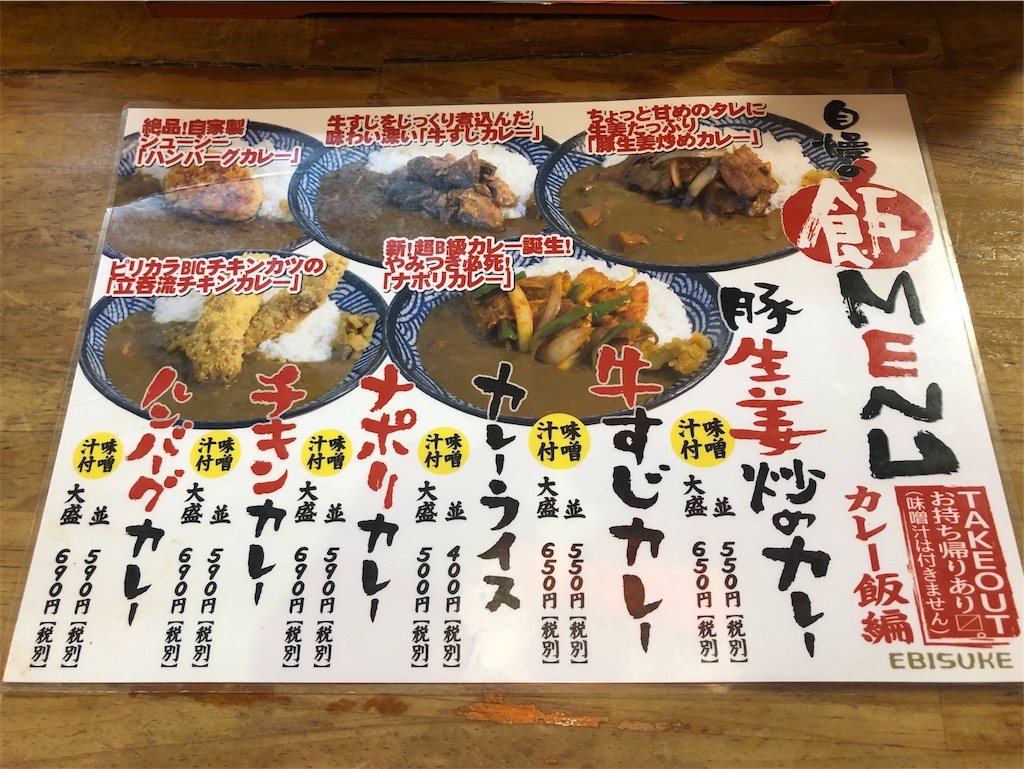 自慢の
飯MENU
カレー飯編
TAKEOUT
お持ち帰りあり〼。
(味噌汁は付きません)
EBISUKE
ちょっと甘めのタレに
生姜たっぷり
「豚生姜炒めカレー」
牛すじをじっくり煮込んだ
味わい深い「牛すじカレー」
絶品!自家製
ジューシー
「ハンバーグカレー」
新!超B級カレー誕生!
やみつき必死!
「ナポリカレー」
ピリカラBIGチキンカツの
「立呑流チキンカレー」
豚生姜炒めカレー
味噌
汁付
並 550円【税別】
大盛 650円【税別】
牛すじカレー
味噌
汁付
並 550円【税別】
大盛 650円【税別】
カレーライス
味噌
汁付
並 400円【税別】
大盛 500円【税別】
ナポリカレー
味噌
汁付
並 590円【税別】
大盛 690円【税別】
チキンカレー
味噌
汁付
並 590円【税別】
大盛 690円【税別】
ハンバーグカレー
味噌
汁付
並 590円【税別】
大盛 690円【税別】